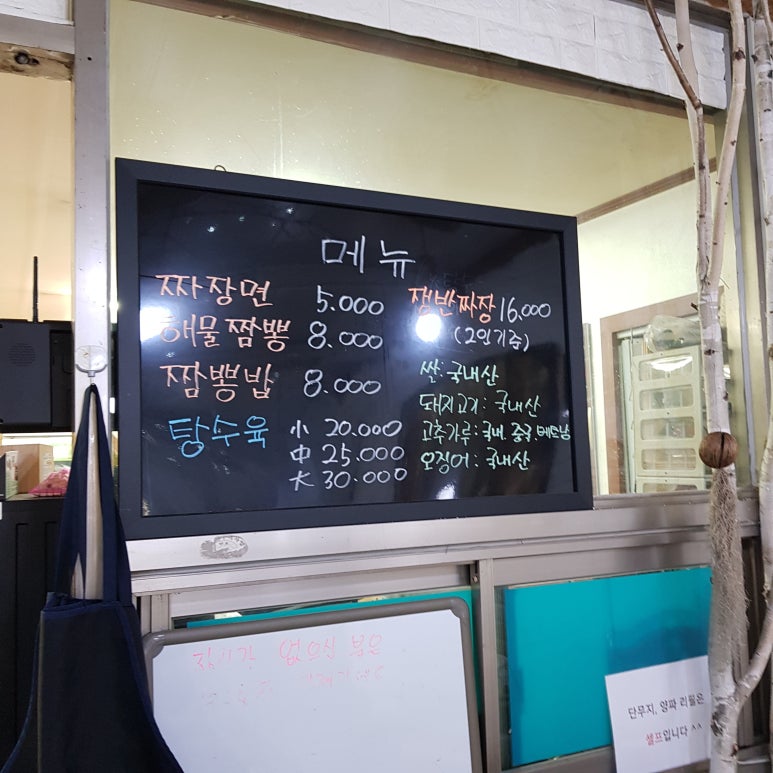 메뉴
짜장면 5.000
해물짬뽕 8.000
짬뽕밥 8.000
탕수육 小 20.000
中 25.000
大 30.000
쟁반짜장 16.000
(2인기준)
쌀:국내산
돼지고기: 국내산
고추가루:국내.중국.베트남
오징어:국내산
없으신 분은
단무지, 양파 리필은
셀프입니다 ^^